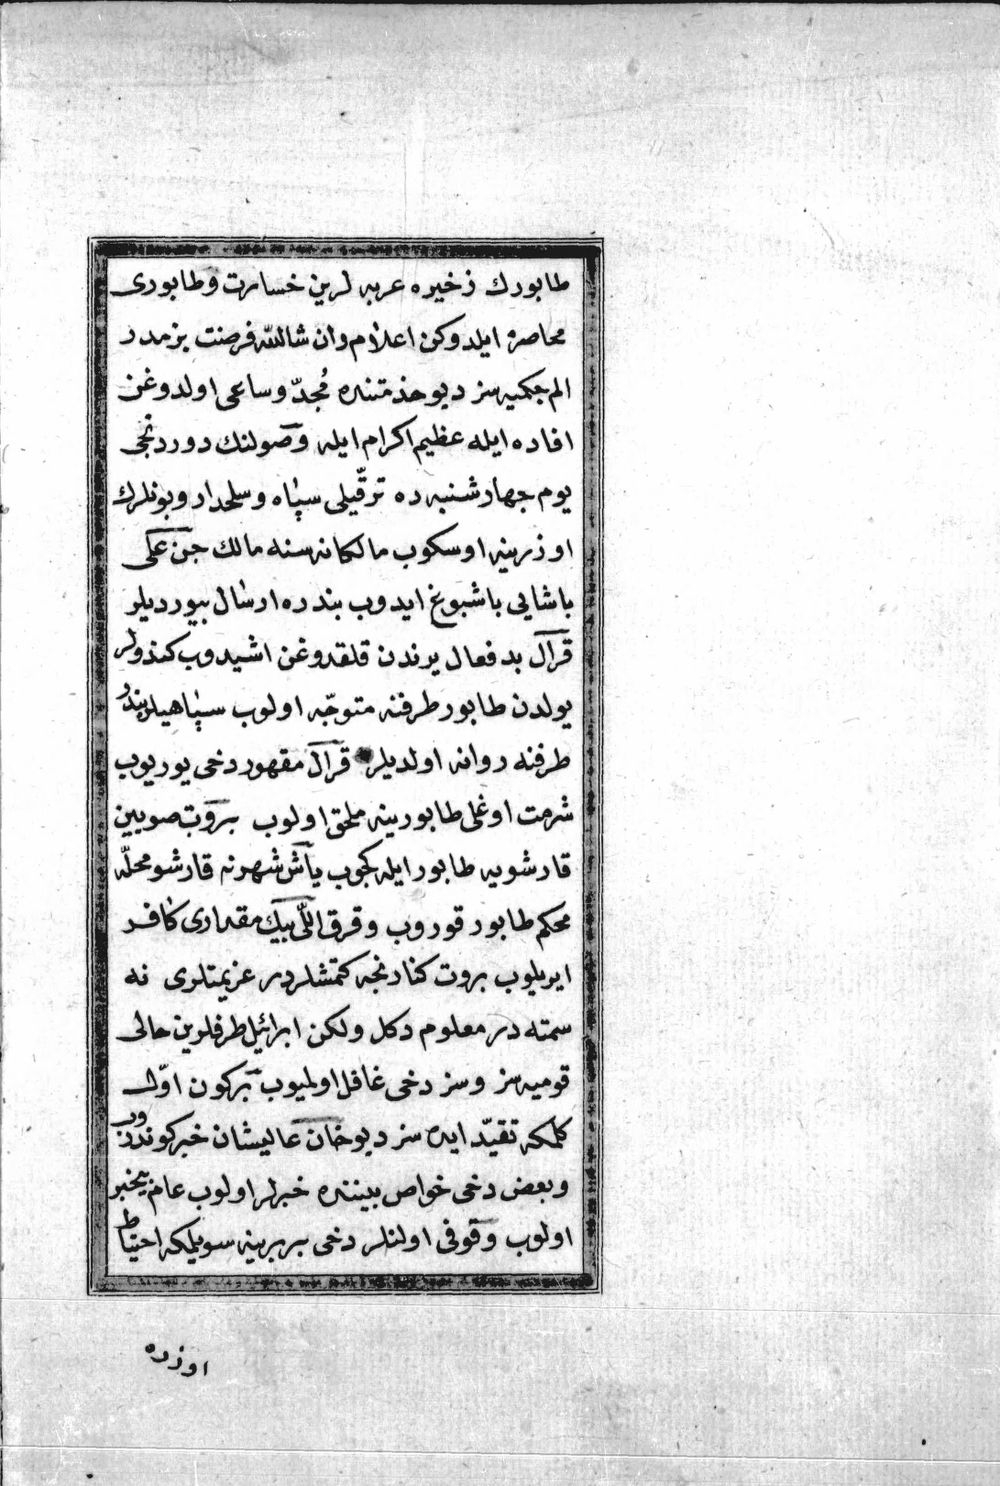 طابورك ذخیره عربه لرین خسارت و طابوری
محاصره ایلدوكن اعلام وان شاالله فرصت بزمدر
الم چكمیه سز دیو خدمتنده مُجدّ وساعی اولدوغن
افاده ایله عظیم اكرام ایله وصولنك دوردنجی
یوم چهارشنبه ده ترقّیلی سپاه و سلحدار و بونلرك
اوزرینه اوسكوب مالكانه سنه مالك جن علی
باشایی باشبوغ ایدوب بندره ارسال بیوردیلر
قرال بدفعال یرندن قلقدوغن اشیدوب كندولر
یولدن طابور طرفنه متوجّه اولوب سپاهیلر بندر
طرفنه روانه اولدیلر قرال مقهور دخی یوریوب
شرمت اوغلی طابورینه ملحق اولوب بروت صویین
قارشویه طابور ایله كچوب یاش شهرنه قارشو محلّه
محكم طابور قوروب و قرق اللّی بیك مقداری كافر
ایریلوب بروت كنارنجه كتمشلردر عزیمتلری نه
سمته در معلوم دكل ولكن ابرائیل طرفلرین خالی
قومیه سز وسز دخی غافل اولمیوب بركون اوّل
كلمكه تقیّد ایده سز دیو خان عالیشان خبر كوندرور
وبعض دخی خواص بیننده خبرلر اولوب عام بیخبر
اولوب وقوفی اولنلر دخی بربرینه سویلمكه احتیاط
اوزده